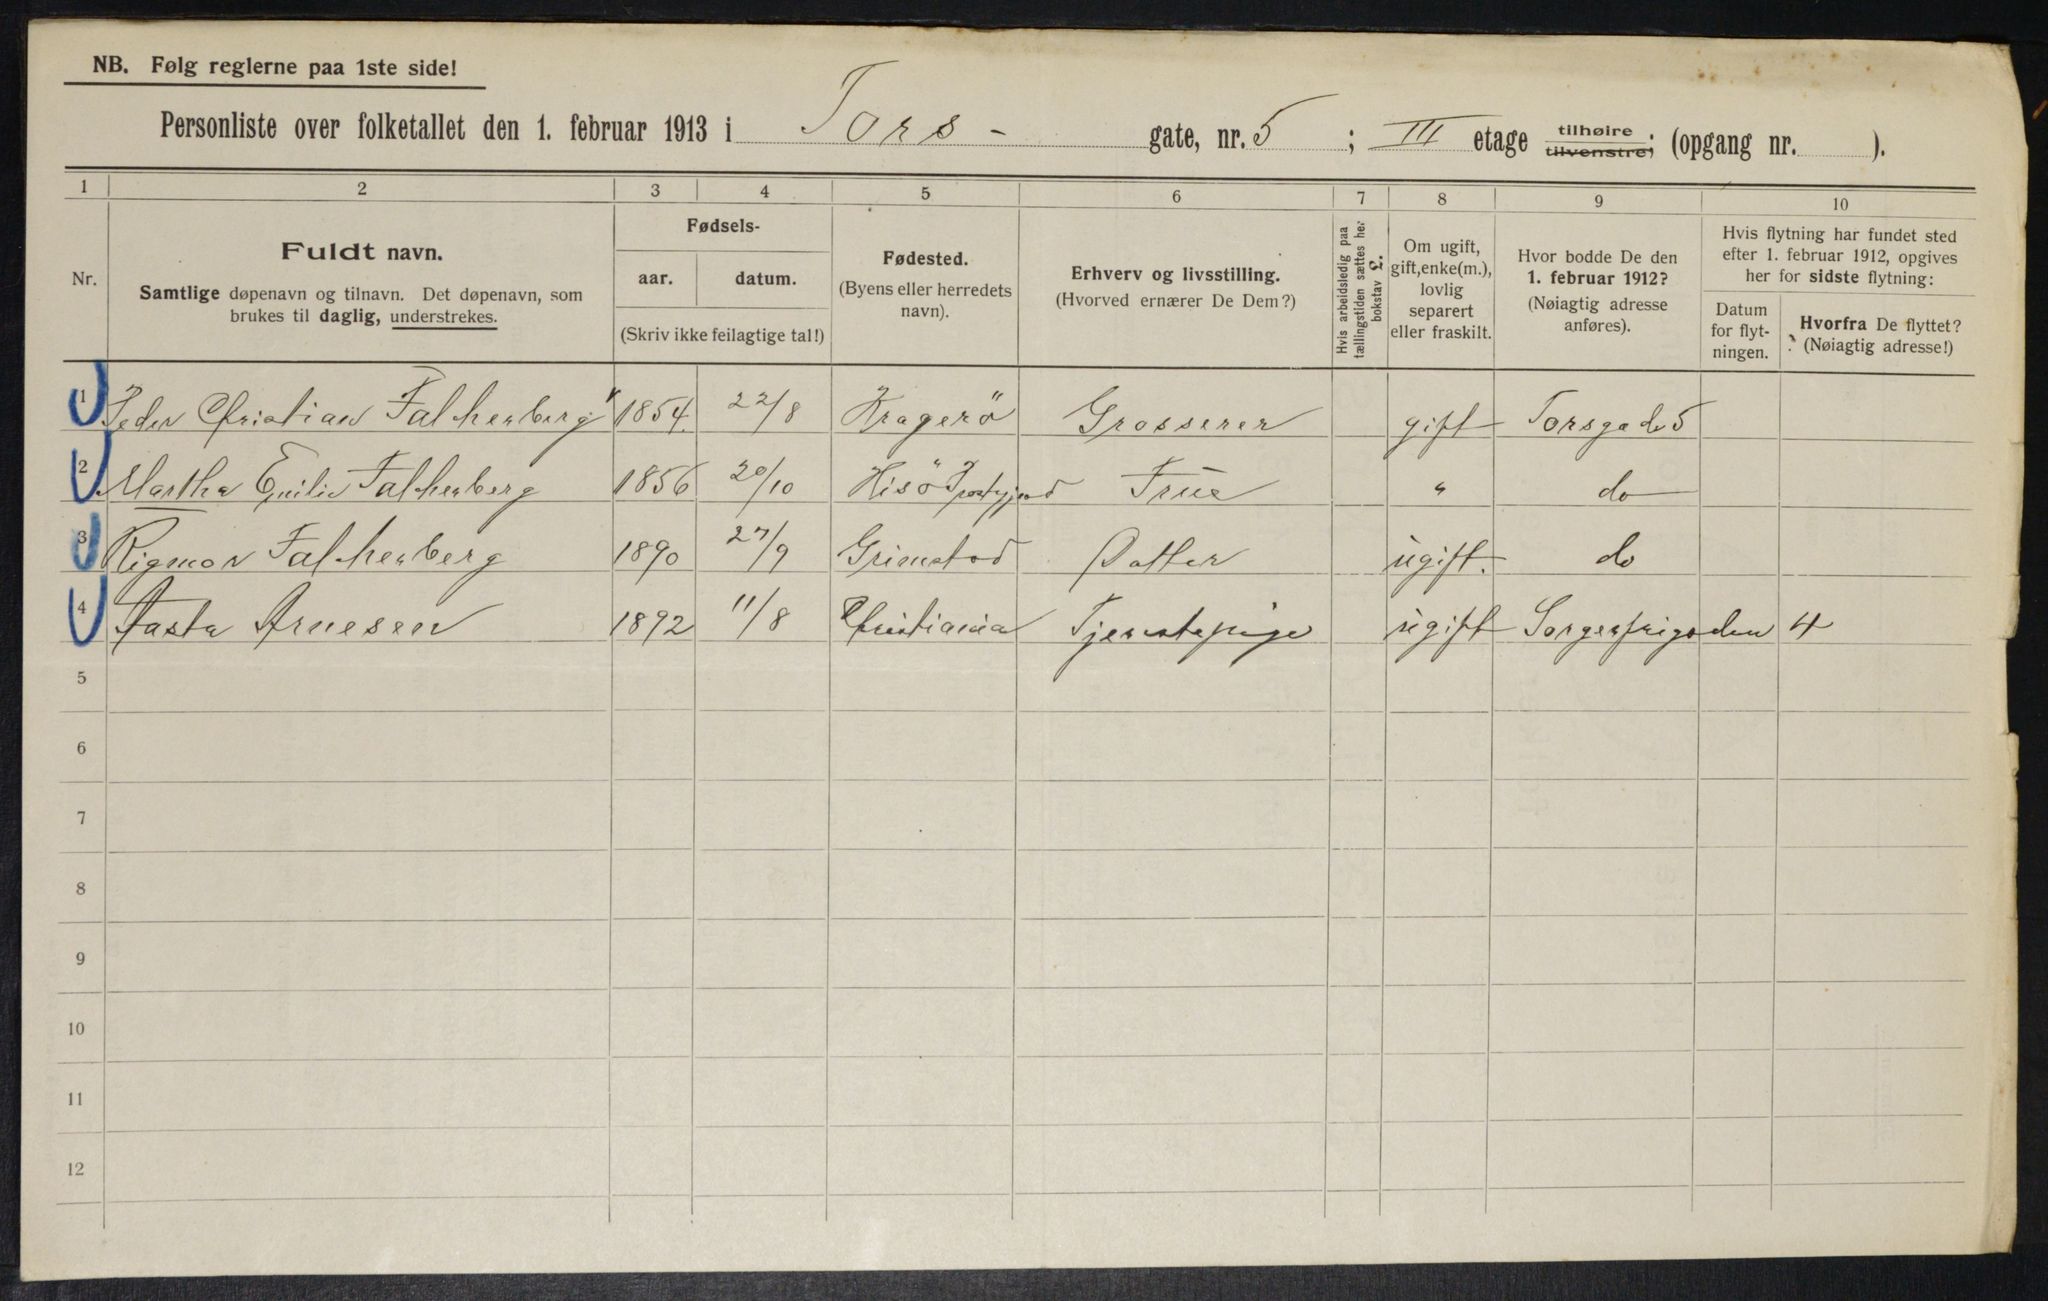 NB. Følg reglerne paa 1ste side!
Personliste over folketallet den 1. februar 1913 i Tors- gate, nr. 5 ; III etage tilhøire tilvenstre; (opgang nr. ).
1 2 3 4 5 6 7 8 9 10
Nr.
Fuldt navn.
Samtlige døpenavn og tilnavn. Det døpenavn, som
brukes til daglig, understrekes.
Fødsels-
aar. datum.
(Skriv ikke feilagtige tal!)
Fødested.
(Byens eller herredets
navn).
Erhverv og livsstilling.
(Hvorved ernærer De Dem?)
Hvis arbeidsledig paa
tællingstiden sættes her
bokstav L.
Om ugift,
gift, enke(m.),
lovlig
separert
eller fraskilt.
Hvor bodde De den
1. februar 1912?
(Nøiagtig adresse
anføres).
Hvis flytning har fundet sted
efter 1. februar 1912, opgives
her for sidste flytning:
Datum
for flyt-
ningen.
Hvorfra De flyttet?
(Nøiagtig adresse!)
1 Peder Christian Falchenberg 1854. 22/8 Kragerö Grosserer gift Torsgade 5
2 Martha Emilie Falchenberg 1856 20/10 Hisö Frue " do
3 Rigmor Falchenberg 1890 27/9 Grimstad Datter ugift. do
4 Aasta Arnesen 1892 11/8 Christiania Tjenestepige ugift Sorgenfrigaden 4
5
6
7
8
9
10
11
12